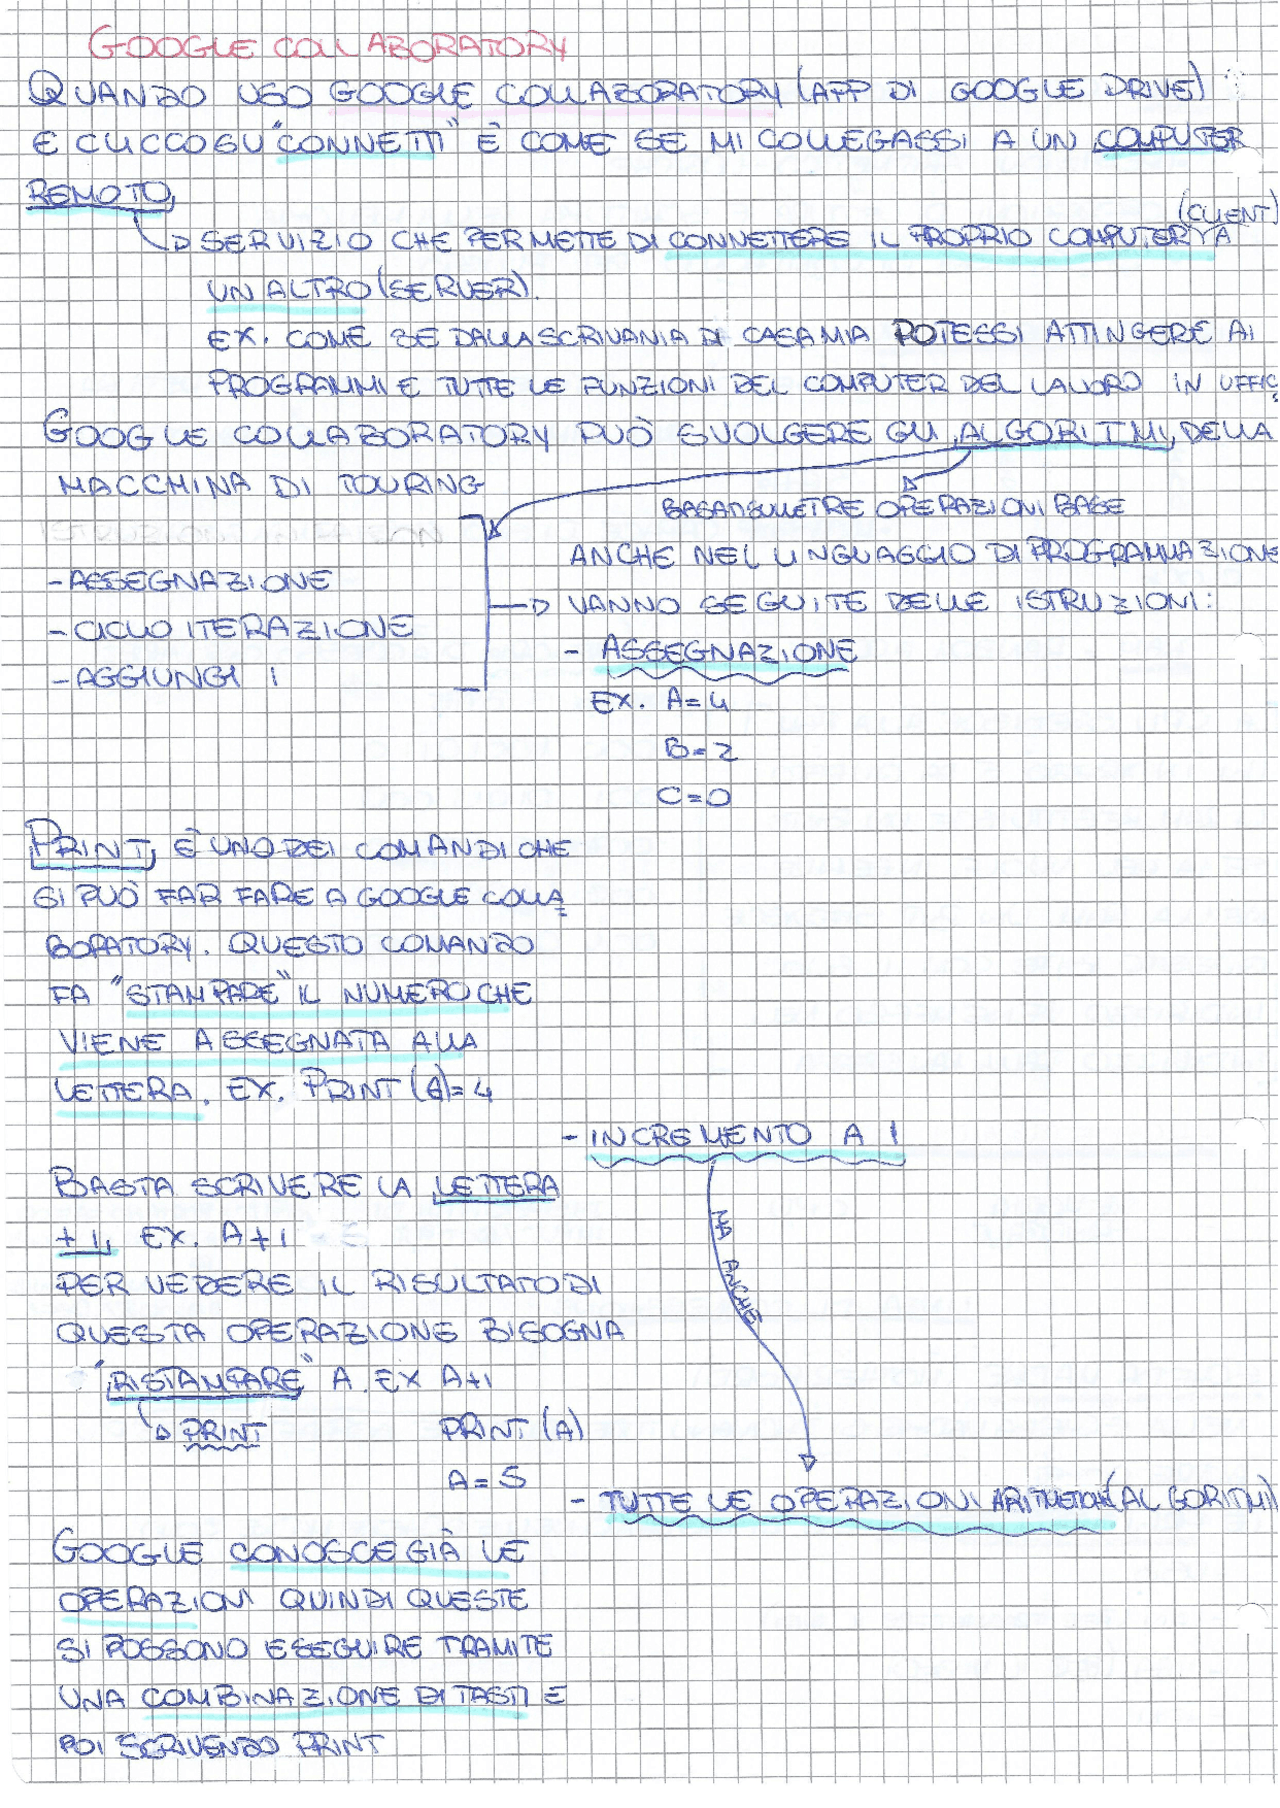 GOOGLE COLLABORATORY
QUANDO USO GOOGLE COLLABORATORY (APP DI GOOGLE DRIVE)
E CLICCO SU "CONNETTI" È COME SE MI COLLEGASSI A UN COMPUTER
REMOTO
(CLIENT)
SERVIZIO CHE PERMETTE DI CONNETTERE IL PROPRIO COMPUTER A
UN ALTRO (SERVER).
EX. COME SE DALLA SCRIVANIA DI CASA MIA POTESSI ATTINGERE AI
PROGRAMMI E TUTTE LE FUNZIONI DEL COMPUTER DEL LAVORO IN UFFIC
GOOGLE COLLABORATORY PUÒ SVOLGERE GLI ALGORITMI DELLA
MACCHINA DI TOURING
BASATI SULLE TRE OPERAZIONI BASE
- ASSEGNAZIONE
- CICLO ITERAZIONE
- AGGIUNGI 1
ANCHE NEL LINGUAGGIO DI PROGRAMMAZIONE
VANNO SEGUITE DELLE ISTRUZIONI:
- ASSEGNAZIONE
EX. A=4
B=2
C=0
PRINT È UNO DEI COMANDI CHE
SI PUÒ FAR FARE A GOOGLE COLLA
BORATORY. QUESTO COMANDO
FA "STAMPARE" IL NUMERO CHE
VIENE ASSEGNATA ALLA
LETTERA. EX. PRINT (A)=4
- INCREMENTO A 1
BASTA SCRIVERE LA LETTERA
+1, EX. A+1
PER VEDERE IL RISULTATO DI
QUESTA OPERAZIONE BISOGNA
"RISTAMPARE" A. EX A+1
PRINT
PRINT (A)
A=5
MA ANCHE
- TUTTE LE OPERAZIONI ARITMETICHE (ALGORITMI)
GOOGLE CONOSCE GIÀ LE
OPERAZIONI QUINDI QUESTE
SI POSSONO ESEGUIRE TRAMITE
UNA COMBINAZIONE DI TASTI E
POI SCRIVENDO PRINT